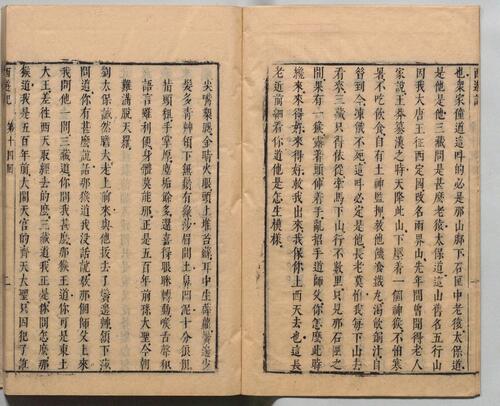 西遊記
也衆家僮道這叫的必是那山脚下石匣中老猿太保道
是他是他三藏問是甚麼老猿太保道這山舊名五行山
因我大唐王征西定國改名兩界山先年間曾聞得老人
家說王莽篡漢之時天降此山下壓着一個神猴不怕寒
暑不吃飲食自有土神監押教他饑餐鐵丸渴飲銅汁自
昔到今凍餓不死這叫必定是他長老莫怕我每下山去
看來三藏只得依從牽馬下山行不數里只見那石匣之
間果有一猴露着頭伸着手亂招手道師父你怎麼此時
纔來來得好來得好救我出來我保你上西天去也這長
老近前細看你道他是怎生模樣
尖嘴縮腮金睛火眼頭上堆苔蘚耳中生薜蘿鬢邊少
髮多青草頷下無鬚有綠莎眉間土鼻凹泥十分狼狽
指頭粗手掌厚塵垢餘多還喜得眼睛轉動喉舌聲和
語言雖利便身體莫能那正是五百年前孫大聖今朝
難滿脫天羅
劉太保誠然膽大走上前來與他拔去了鬢邊草頷下莎
問道你有甚麼說話那猴道我沒話說教那個師父上來
我問他一問三藏道你問我甚麼那猴王道你可是東土
大王差往西天取經去的麼三藏道我正是你問怎麼那
猴道我是五百年前大鬧天宮的齊天大聖只因犯了誑
西遊記 第十四回 二